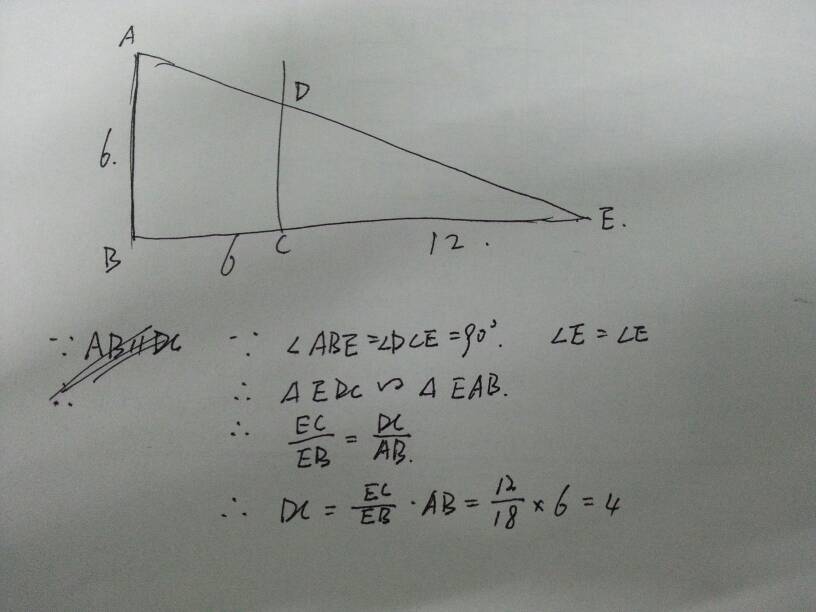 A
D
6.
B
6
C
12.
E.
∵ AB∥DC ∵ ∠ABE=∠DCE=90°. ∠E=∠E
∴ ∴ △EDC∽△EAB.
∴ EC/EB = DC/AB.
∴ DC = EC/EB · AB = 12/18 × 6 = 4